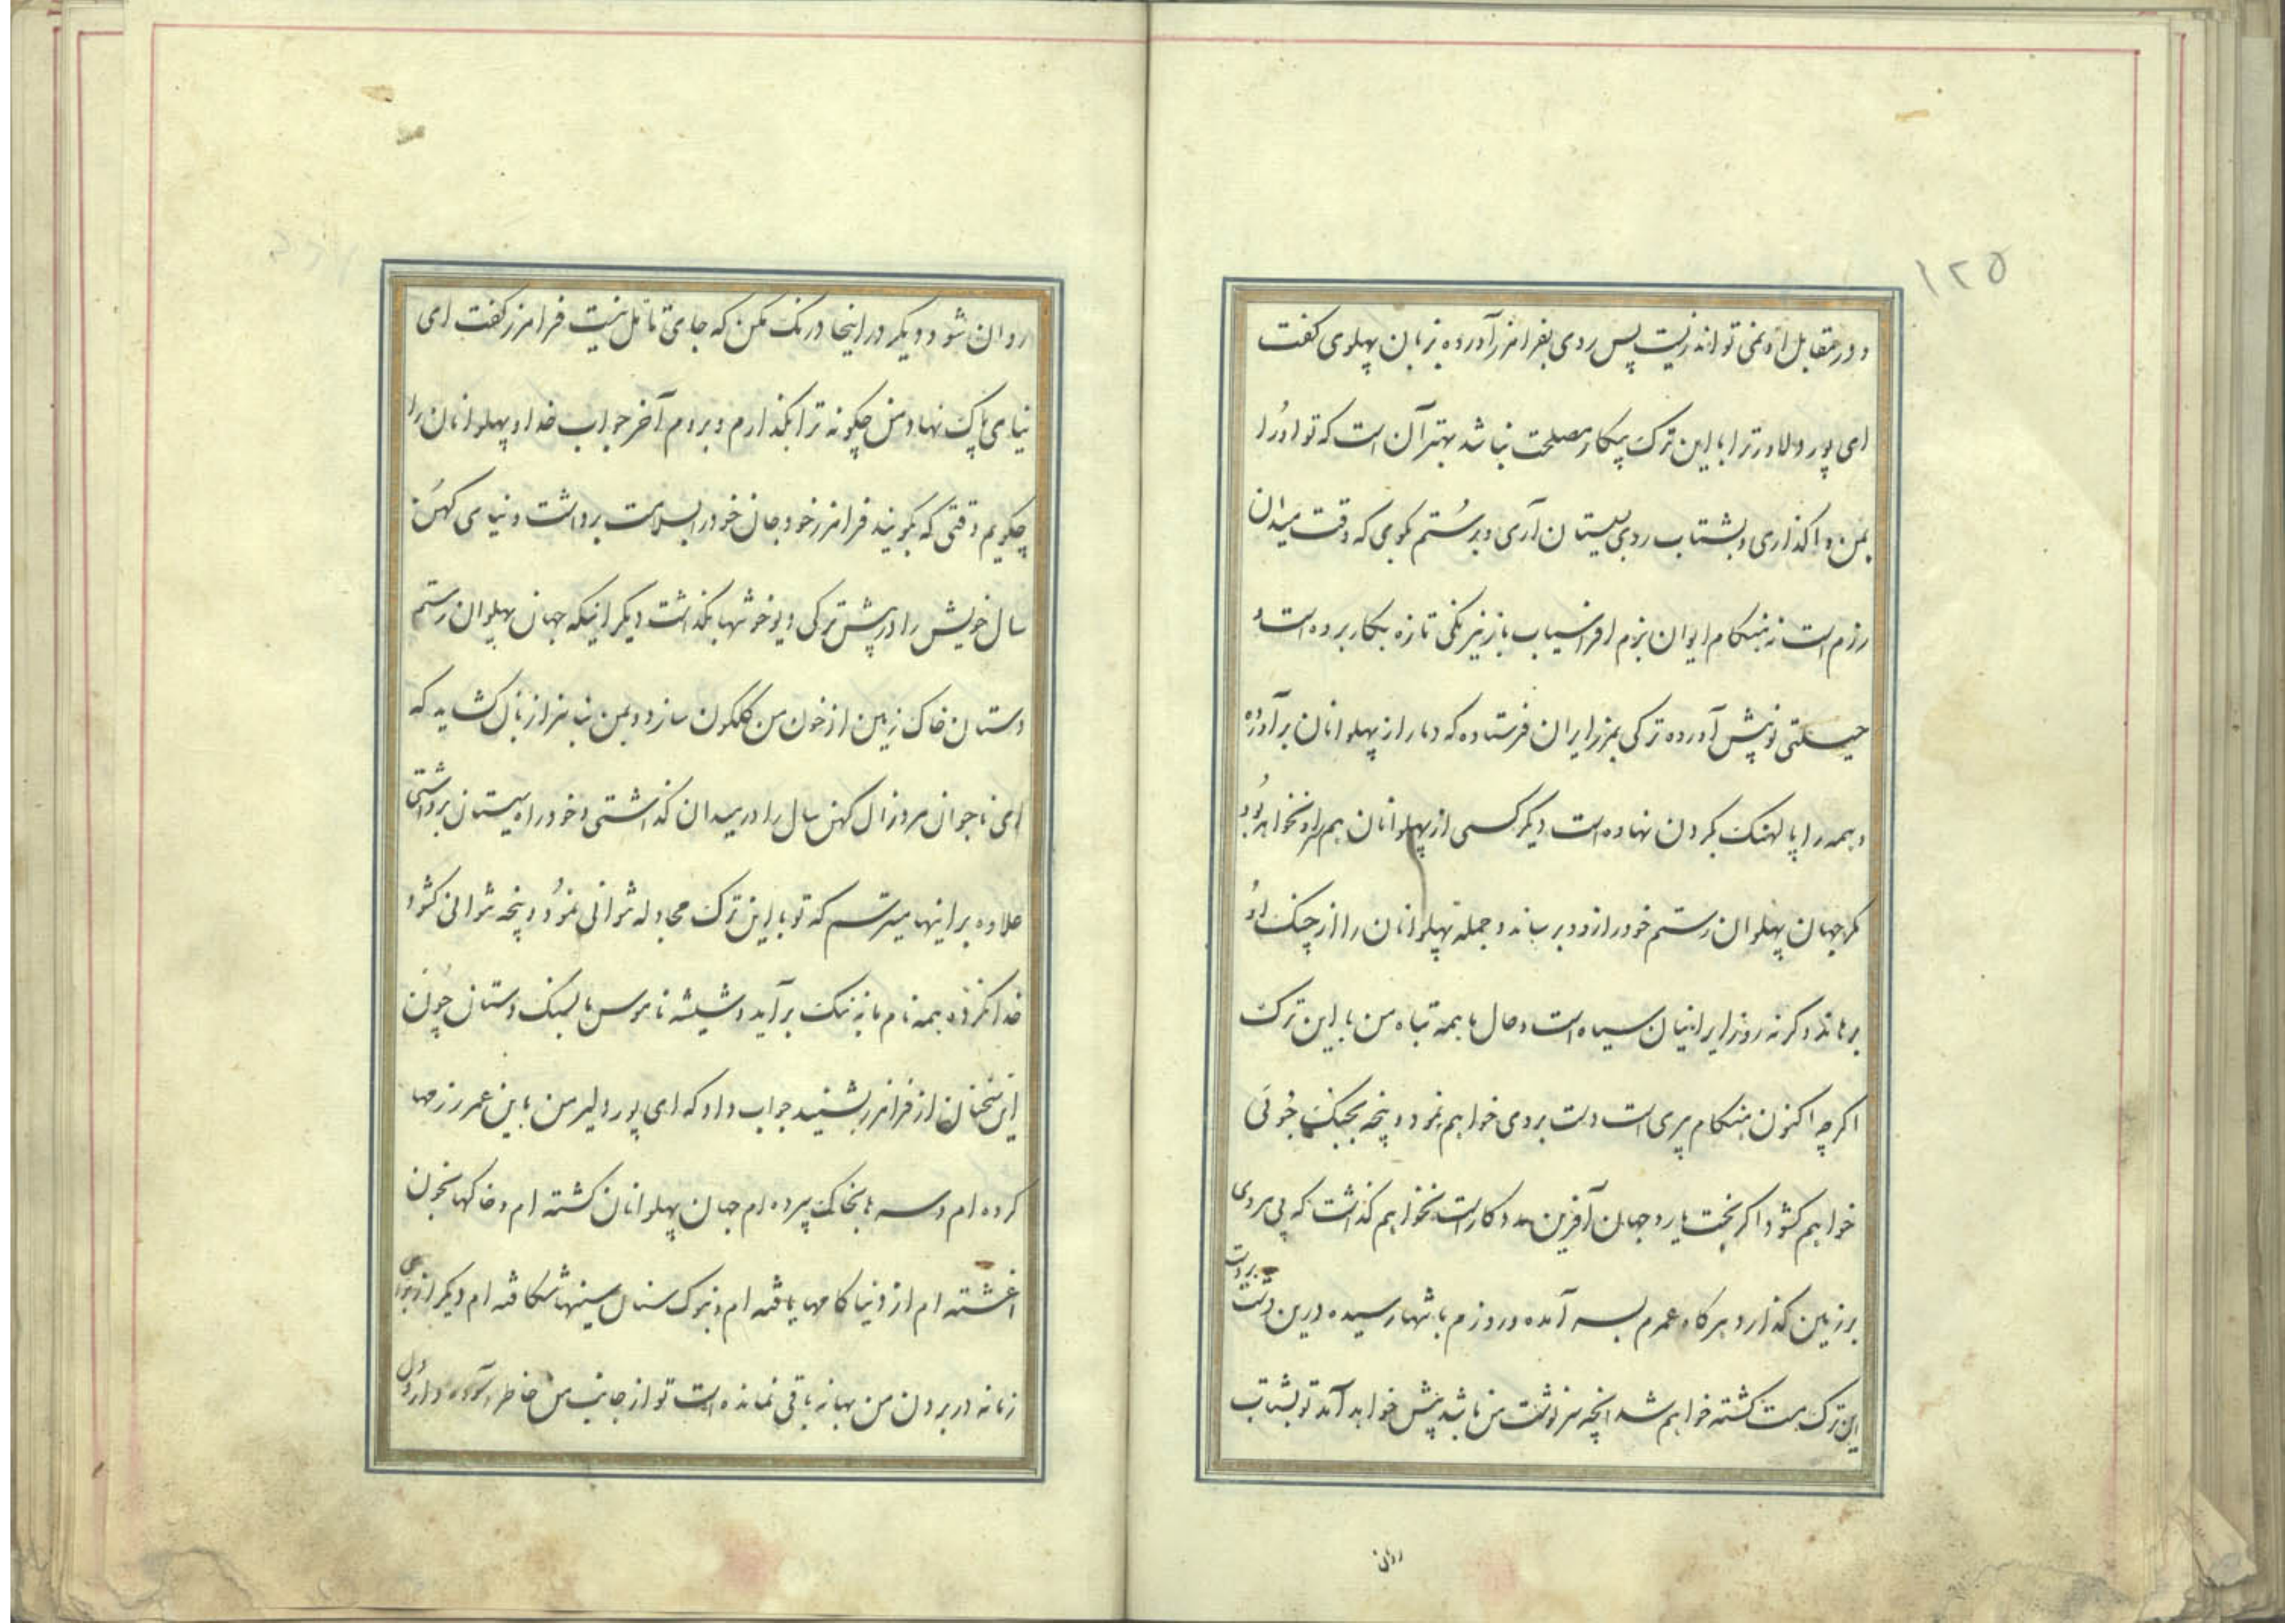 ۱۲۵
و در مقابل او نمی تواند زیست پس روی بفرامرز آورده بزبان پهلوی کفت
ای پور دلاور ترا با این ترک پیکار مصلحت نباشد بهتر آن است که تو او را
بمن واگذاری و بشتاب روی بسیستان آری و برستم کوی که وقت میدان
رزم است نه هنکام ایوان بزم افراسیاب باز نیرنکی تازه بکار برده است و
حیلتی نو پیش آورده ترکی بمرز ایران فرستاده که دمار از پهلوانان برآورده
و همه را پالهنک بکردن نهاده است دیکر کسی از پهلوانان هم‌راه او نخواهد بود
مکر جهان پهلوان رستم خود را زودبرساند و جمله پهلوانان را از چنک او
برهاند وکرنه روز ایرانیان سیاه است و حال ما همه تباه من با این ترک
اکرچه اکنون هنکام پیری است دست بردی خواهم نمود و پنجه بجنک جوئی
خواهم کشود اکر بخت یار و جهان آفرین مددکار است نخواهم کذاشت که پی مردی
بر زمین کذارد هرکاه عمرم بسر آمده و روزم بانتها رسیده درین دشت بر دست
این ترک مست کشته خواهم شد آنچه سرنوشت من باشد پیش خواهد آمد تو بشتاب
روان
روان شو و دیکر در اینجا درنک مکن که جای تامل نیست فرامرز کفت ای
نیای پاک نهاد من چکونه ترا بکذارم و بروم آخر جواب خدا و پهلوانان را
چکویم وقتی که بکویند فرامرز خود جان خود را بسلامت برداشت و نیای کهن
سال خویش را در پیش ترکی دیو خو تنها بکذاشت دیکر اینکه جهان پهلوان رستم
دستان خاک زمین از خون من کلکون سازد و بمن بناسزا زبان کشاید که
ای ناجوان مرد زال کهن سال را در میدان کذاشتی و خود راه سیستان برداشتی
علاوه بر اینها میترسم که تو با این ترک مجادله نتوانی نمود و پنجه نتوانی کشود
خدا نکرده همه نام ما به ننک برآید و شیشه ناموس ما بسنک دستان چون
این سخنان از فرامرز بشنید جواب داد که ای پور دلیر من باین عمر رزمها
کرده ام و سرها بخاک سپرده ام جهان پهلوانان کشته ام و خاکها بخون
آغشته ام از دنیا کامها یافته ام و بنوک سنان سینها شکافته ام دیکر از برای
زمانه در بردن من بهانه باقی نمانده است تو از جانب من خاطر آسوده دار و دل